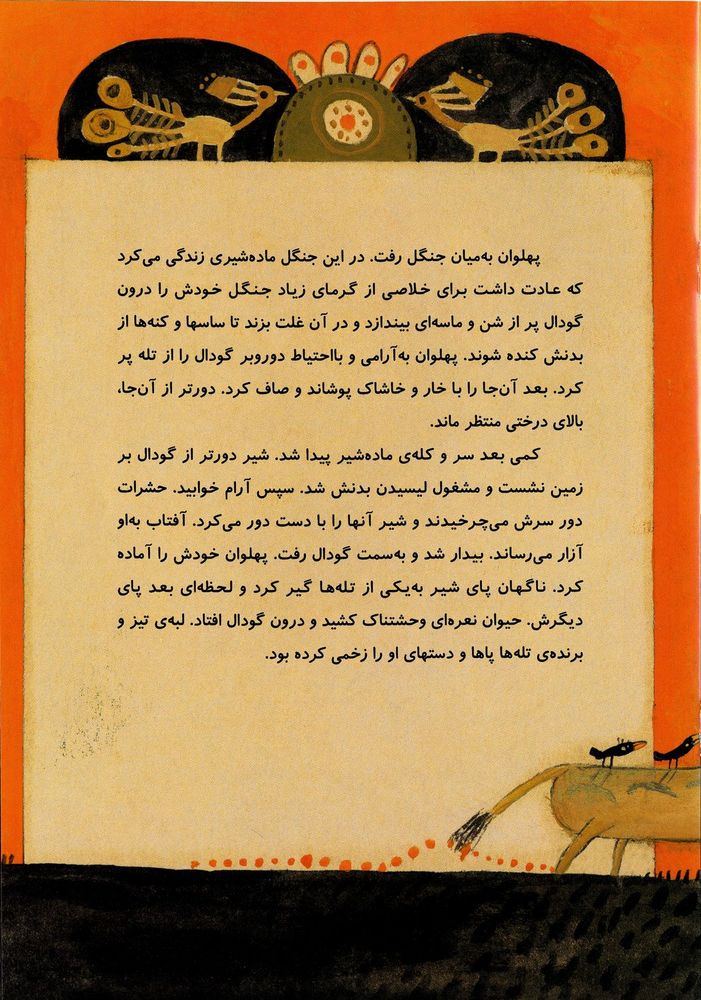 پهلوان به‌میان جنگل رفت. در این جنگل ماده‌شیری زندگی می‌کرد
که عادت داشت برای خلاصی از گرمای زیاد جنگل خودش را درون
گودال پر از شن و ماسه‌ای بیندازد و در آن غلت بزند تا ساسها و کنه‌ها از
بدنش کنده شوند. پهلوان به‌آرامی و بااحتیاط دوروبر گودال را از تله پر
کرد. بعد آن‌جا را با خار و خاشاک پوشاند و صاف کرد. دورتر از آن‌جا،
بالای درختی منتظر ماند.
کمی بعد سر و کله‌ی ماده‌شیر پیدا شد. شیر دورتر از گودال بر
زمین نشست و مشغول لیسیدن بدنش شد. سپس آرام خوابید. حشرات
دور سرش می‌چرخیدند و شیر آنها را با دست دور می‌کرد. آفتاب به‌او
آزار می‌رساند. بیدار شد و به‌سمت گودال رفت. پهلوان خودش را آماده
کرد. ناگهان پای شیر به‌یکی از تله‌ها گیر کرد و لحظه‌ای بعد پای
دیگرش. حیوان نعره‌ای وحشتناک کشید و درون گودال افتاد. لبه‌ی تیز و
برنده‌ی تله‌ها پاها و دستهای او را زخمی کرده بود.